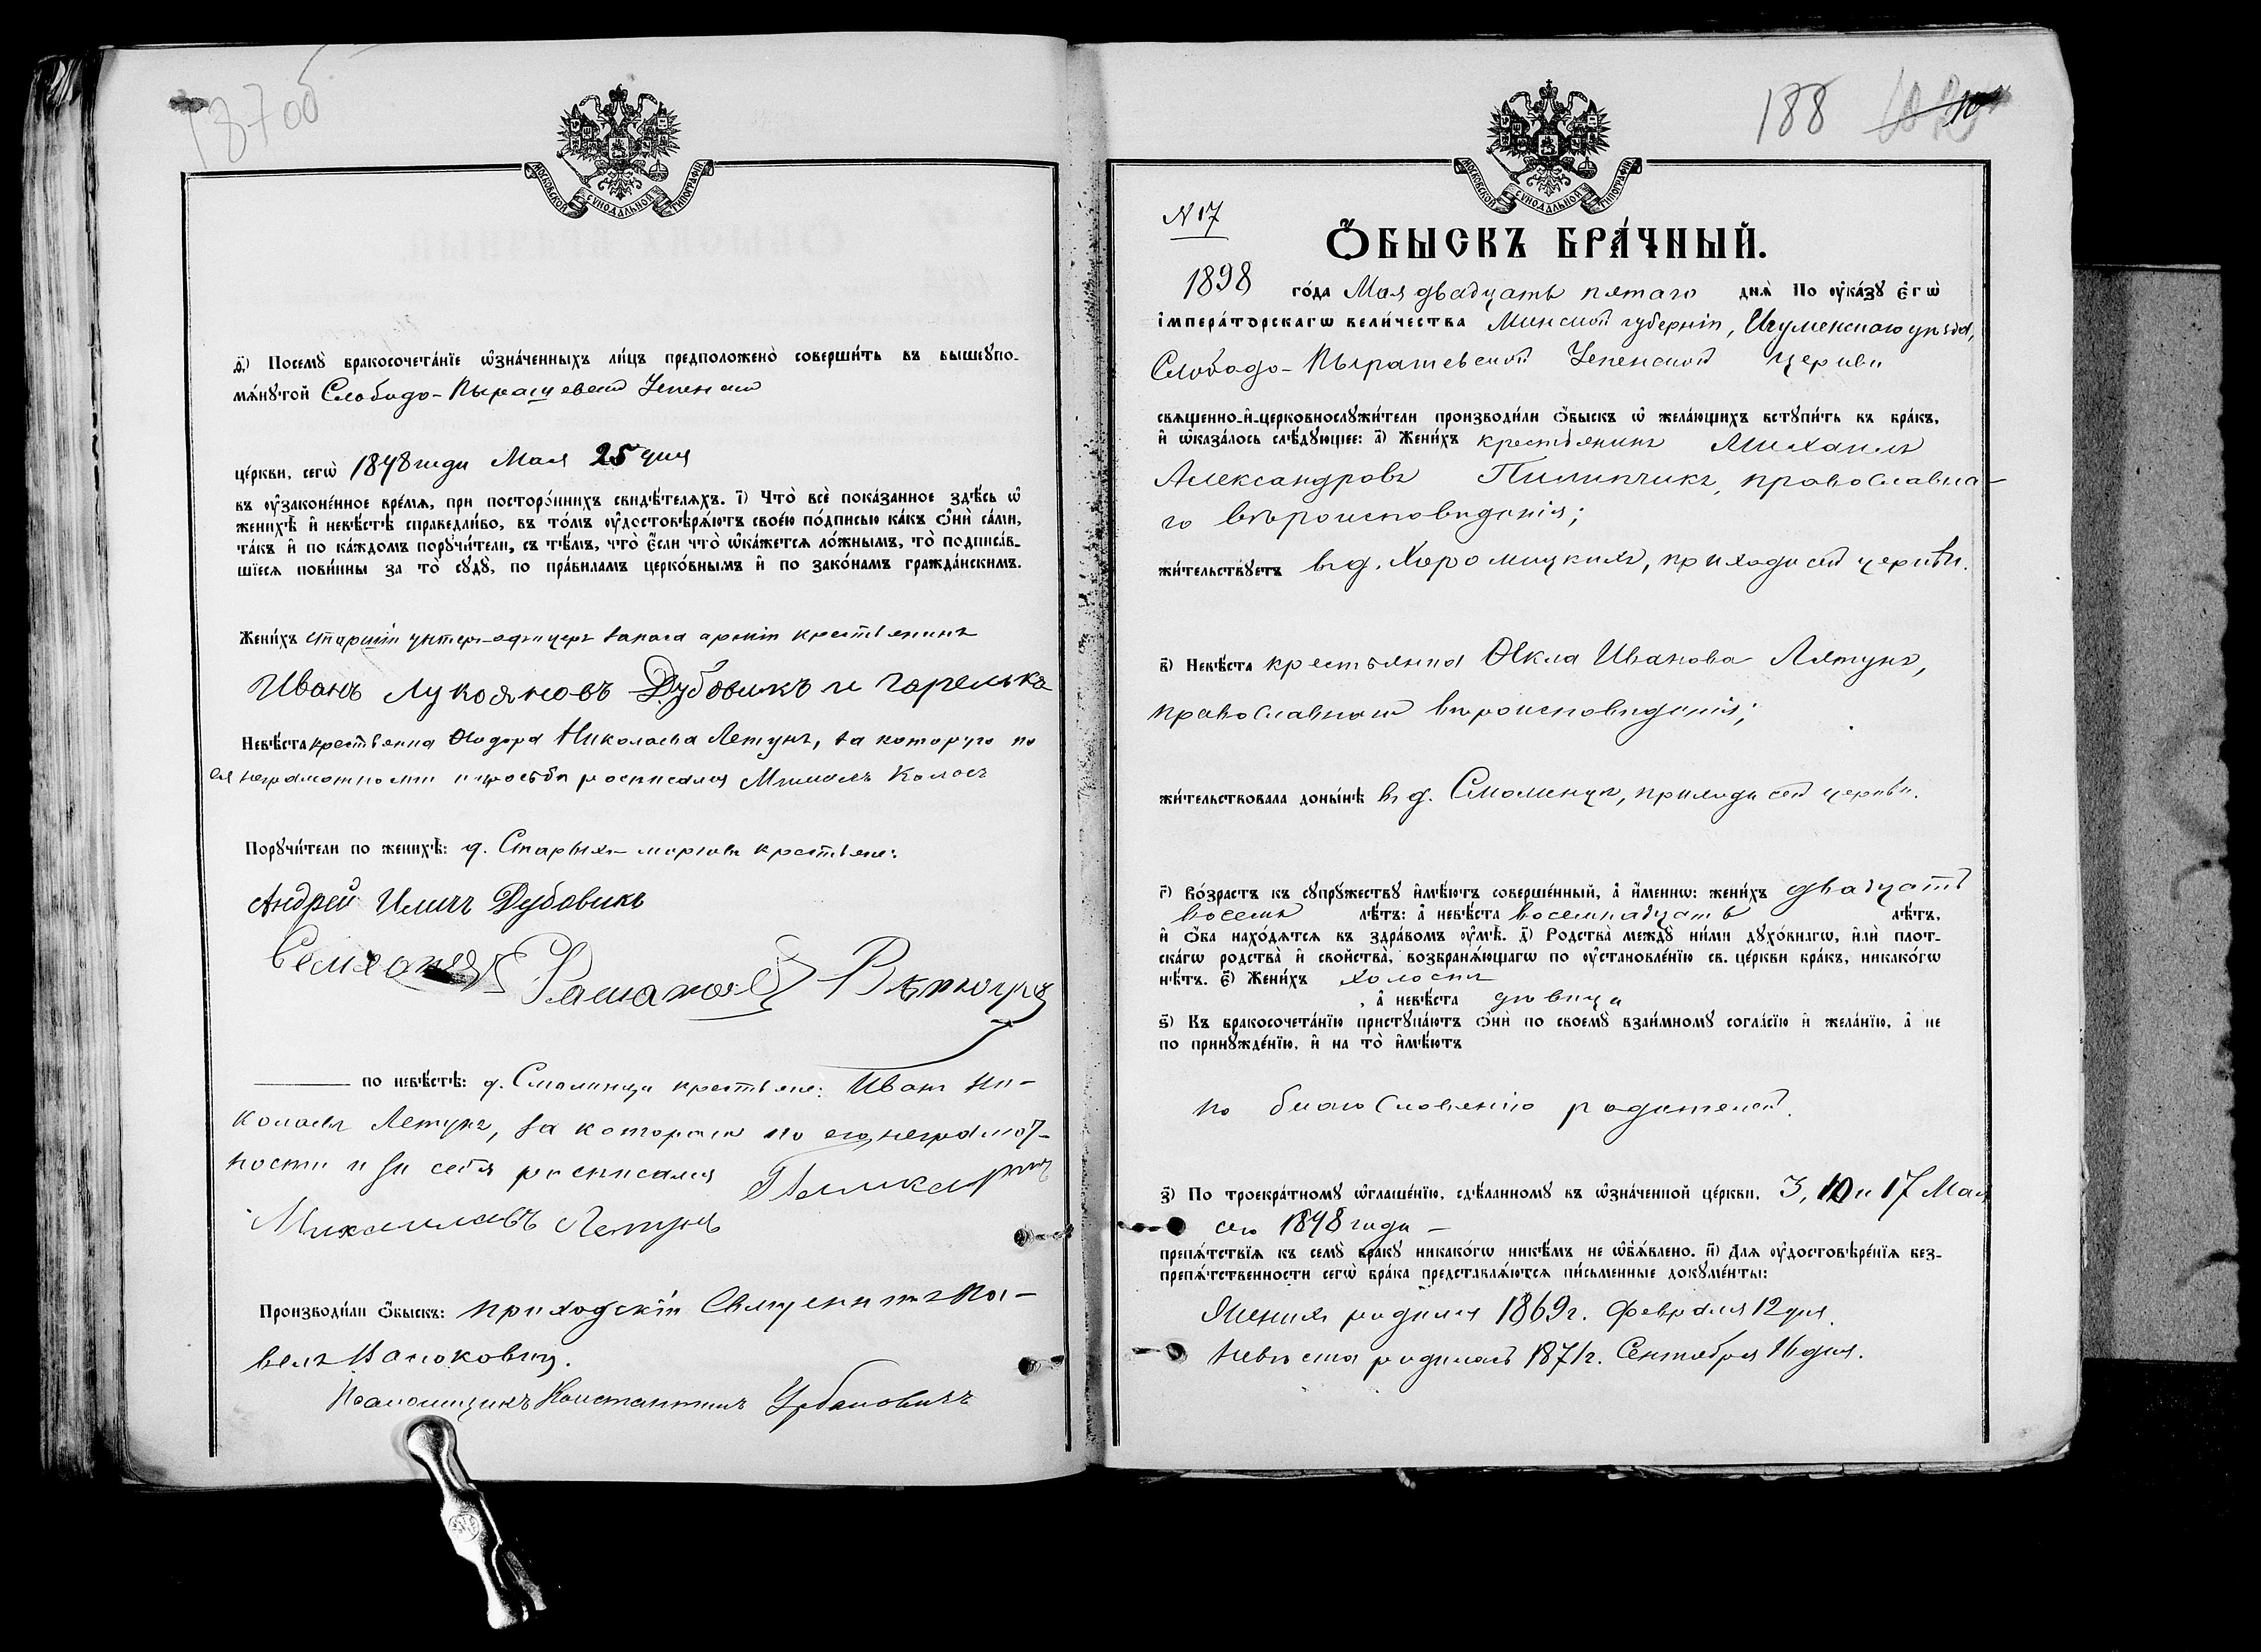 187об
МОСКОВСКОЙ СѴНОДАЛЬНОЙ ТИПОГРАФІИ
д҃) Посемꙋ бракосочета́нїе ѡ҆зна́ченныхъ ли́цъ предположено̀ соверши́ть въ вышеꙋпо-
мѧ́нꙋтой Слободо-Пырашевской Успенской
це́ркви, сегѡ̀ 1898 года Мая 25 дня
въ ᲂу҆зако́ненное вре́мѧ, при посторо́ннихъ свидѣ́телѧхъ. і҃) Что̀ всѐ пока́занное здѣ́сь ѡ҆
женихѣ̀ и҆ невѣ́стѣ справедли́во, въ то́мъ ᲂу҆достовѣрѧ́ютъ свое́ю по́дписью ка́къ ѻ҆нѝ са́ми,
та́къ и҆ по ка́ждомъ порꙋчи́тели, съ тѣ́мъ, что̀ є҆́сли что̀ ѡ҆ка́жетсѧ ло́жнымъ, то̀ подписа́в-
шїесѧ пови́нны за то̀ сꙋдꙋ̀, по пра́виламъ церко́внымъ и҆ по зако́намъ гражда́нскимъ.
Жени́хъ старшій унтеръ-офицеръ запаса арміи крестьянинъ
Иванъ Лукояновъ Дубовикъ и Гарелька
Невѣ́ста крестьянка Ѳеодора Николаева Летунъ, за которую по
ея неграмотности и просьбѣ росписался Михаилъ Колосъ
Порꙋчи́тели по женихѣ̀: д. Старыхъ- крестьяне:
Андрей Иличъ Дубовикъ
по невѣ́стѣ: д. Смолинца крестьяне: Иванъ Ни-
колаевъ Летунъ, за котораго по его неграмот-
ности и за себя росписался
Летунъ
Производи́ли ѻ҆́быскъ: приходскій Священникъ Па-
велъ
Псаломщикъ Константинъ Урбановичъ
188
МОСКОВСКОЙ СѴНОДАЛЬНОЙ ТИПОГРАФІИ
N 17
Ѻ҆́БЫСКЪ БРА́ЧНЫЙ.
1898 го́да Мая двадцать пятаго днѧ̀ По ᲂу҆ка́зꙋ є҆гѡ̀
і҆мпера́торскагѡ вели́чества Минской губерніи, Игуменскаго уѣзда,
Слободо-Пырашевской Успенской церкви
свѧщенно-и҆-церковнослꙋжи́тели производи́ли ѻ҆́быскъ ѡ҆ жела́ющихъ встꙋпи́ть въ бра́къ,
и҆ ѡ҆каза́лось слѣ́дꙋющее: а҃) Жени́хъ крестьянинъ Михаилъ
Александровъ Пилипчикъ, православна-
го вѣроисповѣданія;
жи́тельствꙋетъ въ д. Хоромицкихъ, прихода сей церкви.
в҃) Невѣ́ста крестьянка Ѳекла Иванова Летунъ,
православнаго вѣроисповѣданія;
жи́тельствовала доны́нѣ въ д. Смолинцѣ, прихода сей церкви.
г҃) Во́зрастъ къ сꙋпрꙋ́жествꙋ и҆мѣ́ютъ соверше́нный, а҆ и҆́меннѡ: жени́хъ двадцать
восемь лѣ́тъ: а҆ невѣ́ста восемнадцать лѣ́тъ,
и҆ ѻ҆́ба нахо́дѧтсѧ въ здра́вомъ ᲂу҆мѣ̀. д҃) Родства̀ междꙋ̀ ни́ми дꙋхо́внагѡ, и҆лѝ плот-
ска́гѡ родства̀ и҆ свойства̀, возбранѧ́ющагѡ по ᲂу҆становле́нїю св. це́ркви бра́къ, никако́гѡ
нѣ́тъ. є҃) Жени́хъ холостъ
, а҆ невѣ́ста дѣвица
ѕ҃) Къ бракосочета́нїю пристꙋпа́ютъ ѻ҆нѝ по своемꙋ̀ взаи́мномꙋ согла́сїю и҆ жела́нїю, а҆ не
по принꙋжде́нїю, и҆ на то̀ и҆мѣ́ютъ
по благословенію родителей.
з҃) По троекра́тномꙋ ѡ҆глаше́нїю, сдѣ́ланномꙋ въ ѡ҆зна́ченной це́ркви, 3, 10 и 17 Мая
сего 1898 года —
препѧ́тствїѧ къ семꙋ̀ бра́кꙋ никако́гѡ никѣ́мъ не ѡ҆б̾ѧ́влено. и҃) Длѧ ᲂу҆достовѣре́нїѧ без-
препѧ́тственности сегѡ̀ бра́ка представлѧ́ютсѧ пи́сьменные докꙋме́нты:
Женихъ родился 1869г. Февраля 12 дня.
Невѣста родилась 1871г. Сентября 16 дня.